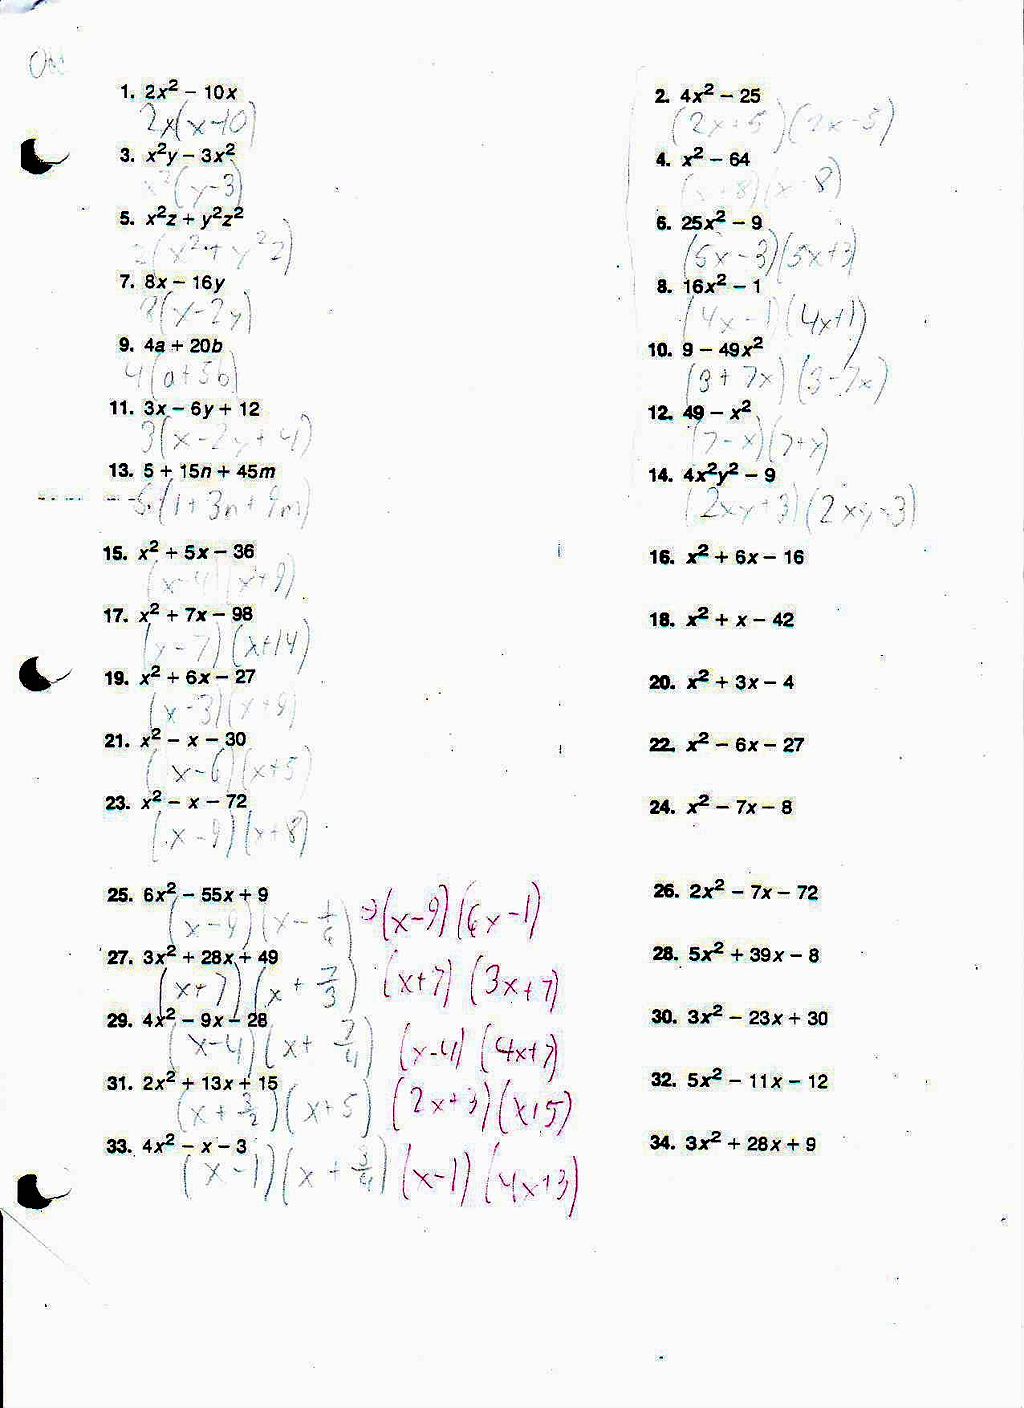 Odd
1. 2x² – 10x
2x(x-10)
2. 4x² – 25
(2x+5)(2x-5)
3. x²y – 3x²
x²(y-3)
4. x² – 64
(x+8)(x-8)
5. x²z + y²z²
z(x²+y²z)
6. 25x² – 9
(5x-3)(5x+3)
7. 8x – 16y
8(x-2y)
8. 16x² – 1
(4x-1)(4x+1)
9. 4a + 20b
4(a+5b)
10. 9 – 49x²
(3+7x)(3-7x)
11. 3x – 6y + 12
3(x-2y+4)
12. 49 – x²
(7-x)(7+x)
13. 5 + 15n + 45m
5(1+3n+9m)
14. 4x²y² – 9
(2xy+3)(2xy-3)
15. x² + 5x – 36
(x-4)(x+9)
16. x² + 6x – 16
17. x² + 7x – 98
(x-7)(x+14)
18. x² + x – 42
19. x² + 6x – 27
(x-3)(x+9)
20. x² + 3x – 4
21. x² – x – 30
(x-6)(x+5)
22. x² – 6x – 27
23. x² – x – 72
(x-9)(x+8)
24. x² – 7x – 8
25. 6x² – 55x + 9
(x-9)(x-1/6) ⇒(x-9)(6x-1)
26. 2x² – 7x – 72
27. 3x² + 28x + 49
(x+7)(x+7/3) (x+7)(3x+7)
28. 5x² + 39x – 8
29. 4x² – 9x – 28
(x-4)(x+7/4) (x-4)(4x+7)
30. 3x² – 23x + 30
31. 2x² + 13x + 15
(x+3/2)(x+5) (2x+3)(x+5)
32. 5x² – 11x – 12
33. 4x² – x – 3
(x-1)(x+3/4) (x-1)(4x+3)
34. 3x² + 28x + 9